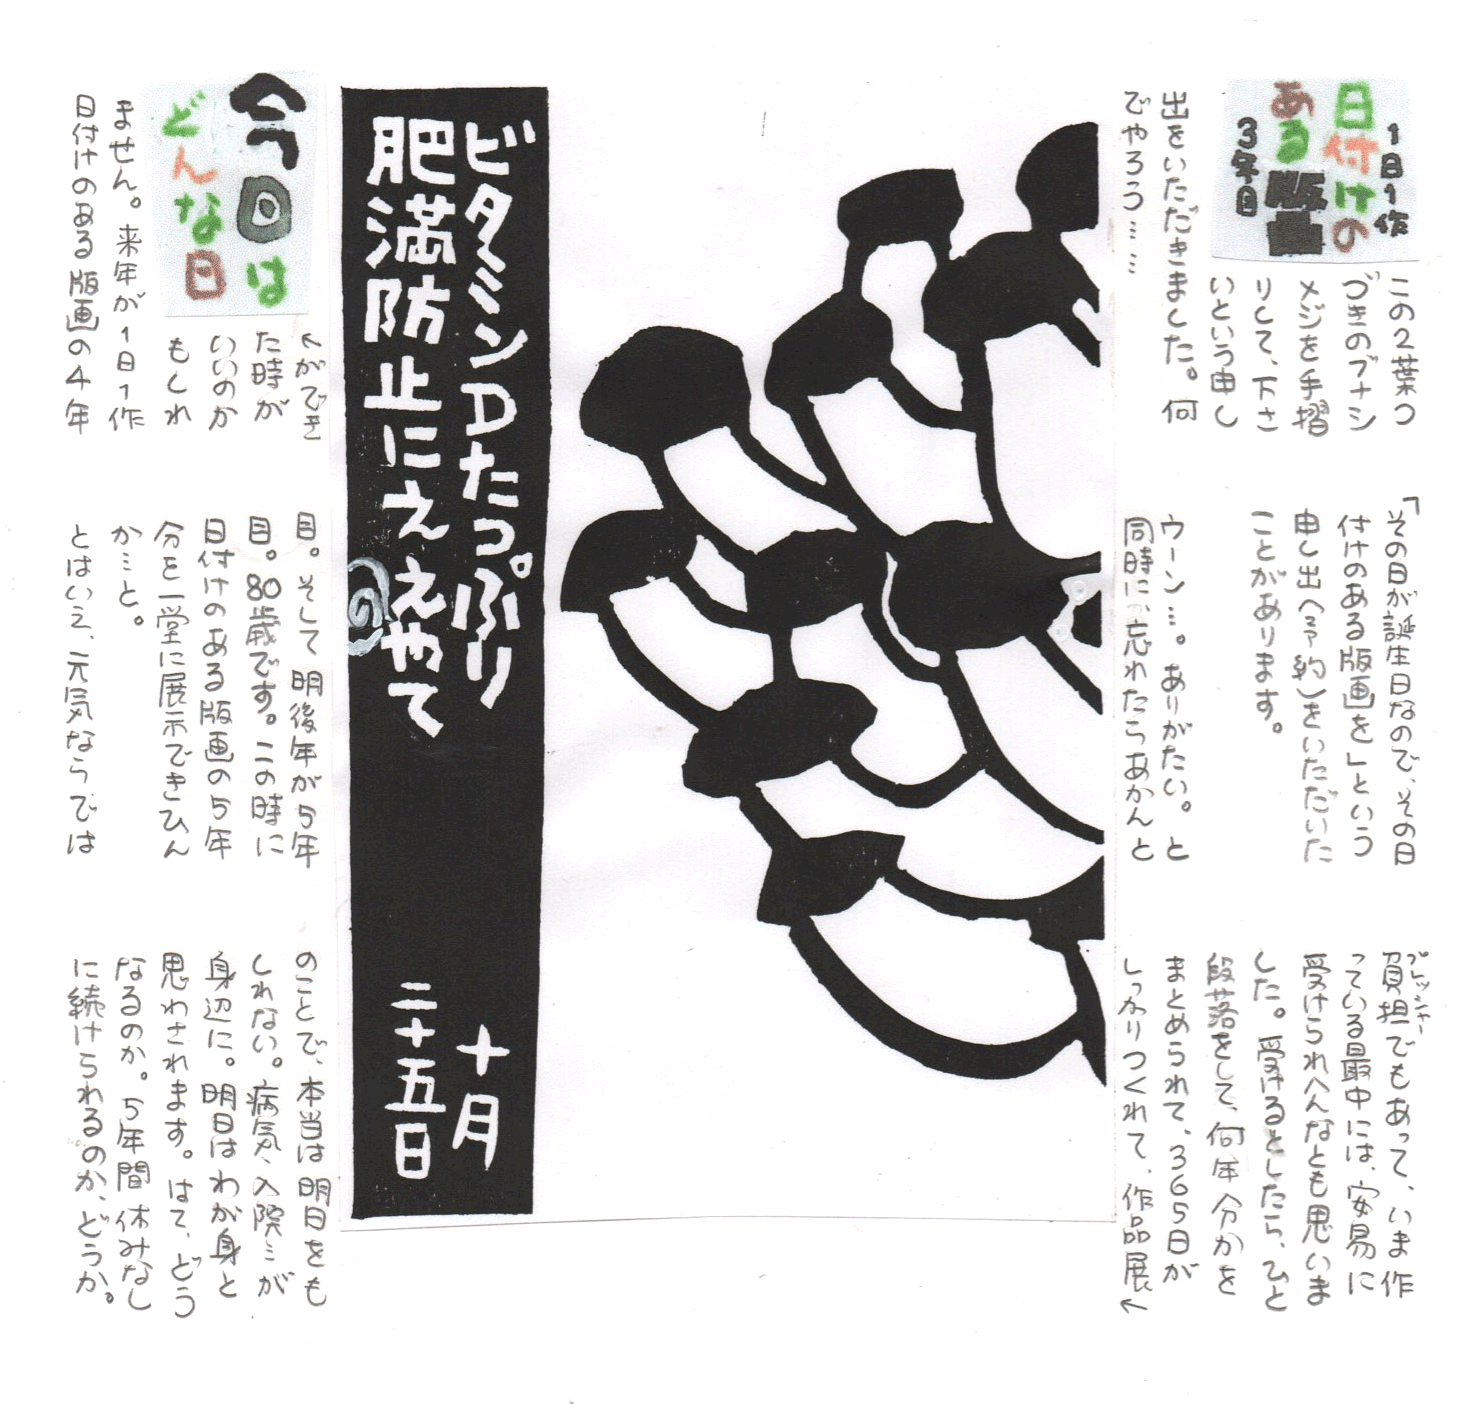 1日1作
日付けの
ある版画
3年目
この2葉つ
づきのブナシ
メジを手摺
りして、下さ
いという申し
出をいただきました。何
でやろう……
「その日が誕生日なので、その日
付けのある版画を」という
申し出(予約)をいただいた
ことがあります。
ウーン…。ありがたい。と
同時に、忘れたらあかんと
プレッシャー
負担でもあって、いま作
っている最中には、安易に
受けられへんなとも思いま
した。受けるとしたら、ひと
段落をして、何年分かを
まとめられて、365日が
しっかりつくれて、作品展←
ビタミンDたっぷり
肥満防止にええやて
十月
二十五日
今日は
どんな日
←ができ
た時が
いいのか
もしれ
ません。来年が1日1作
日付けのある版画の4年
目。そして明後年が5年
目。80歳です。この時に
日付けのある版画の5年
分を一堂に展示できひん
か…と。
とはいえ、元気ならでは
のことで、本当は明日をも
しれない。病気、入院…が
身辺に。明日はわが身と
思わされます。はて、どう
なるのか。5年間休みなし
に続けられるのか、どうか。